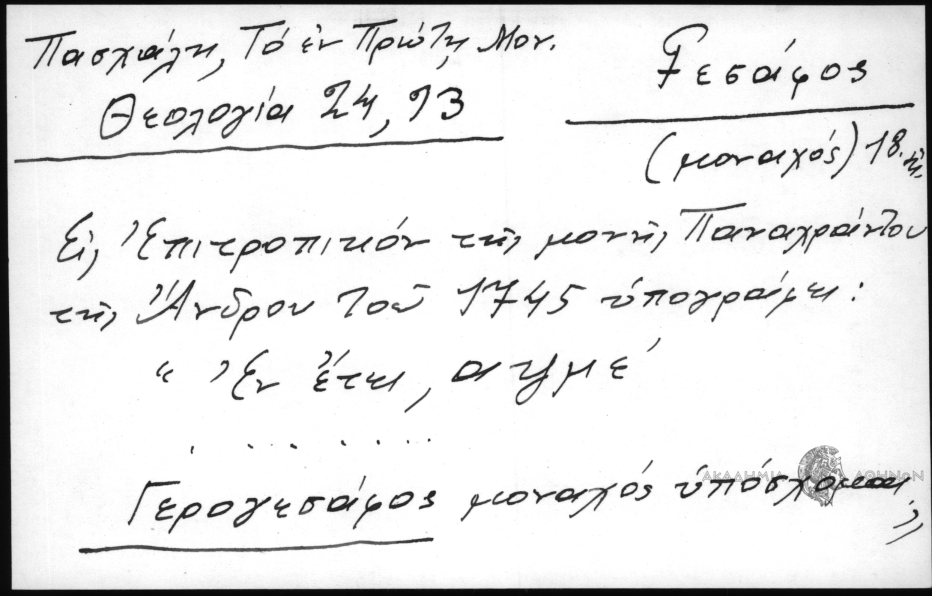 Πασχάλη, Τό ἐν Πρώτῃ Μον.
Θεολογία 24, 13
Γεσάφος
(μοναχός) 18. τῆς
Εἰς Ἐπιτροπικόν τῆς μονῆς Παναχράντου
τῆς Ἄνδρου τοῦ 1745 ὑπογράφει:
“ Ἐν ἔτει, αψμέ
. . . . . . .
Γερογεσάφος μοναχός ὑπόσχομαι „
ΑΚΑΔΗΜΙΑ ΑΘΗΝΩΝ